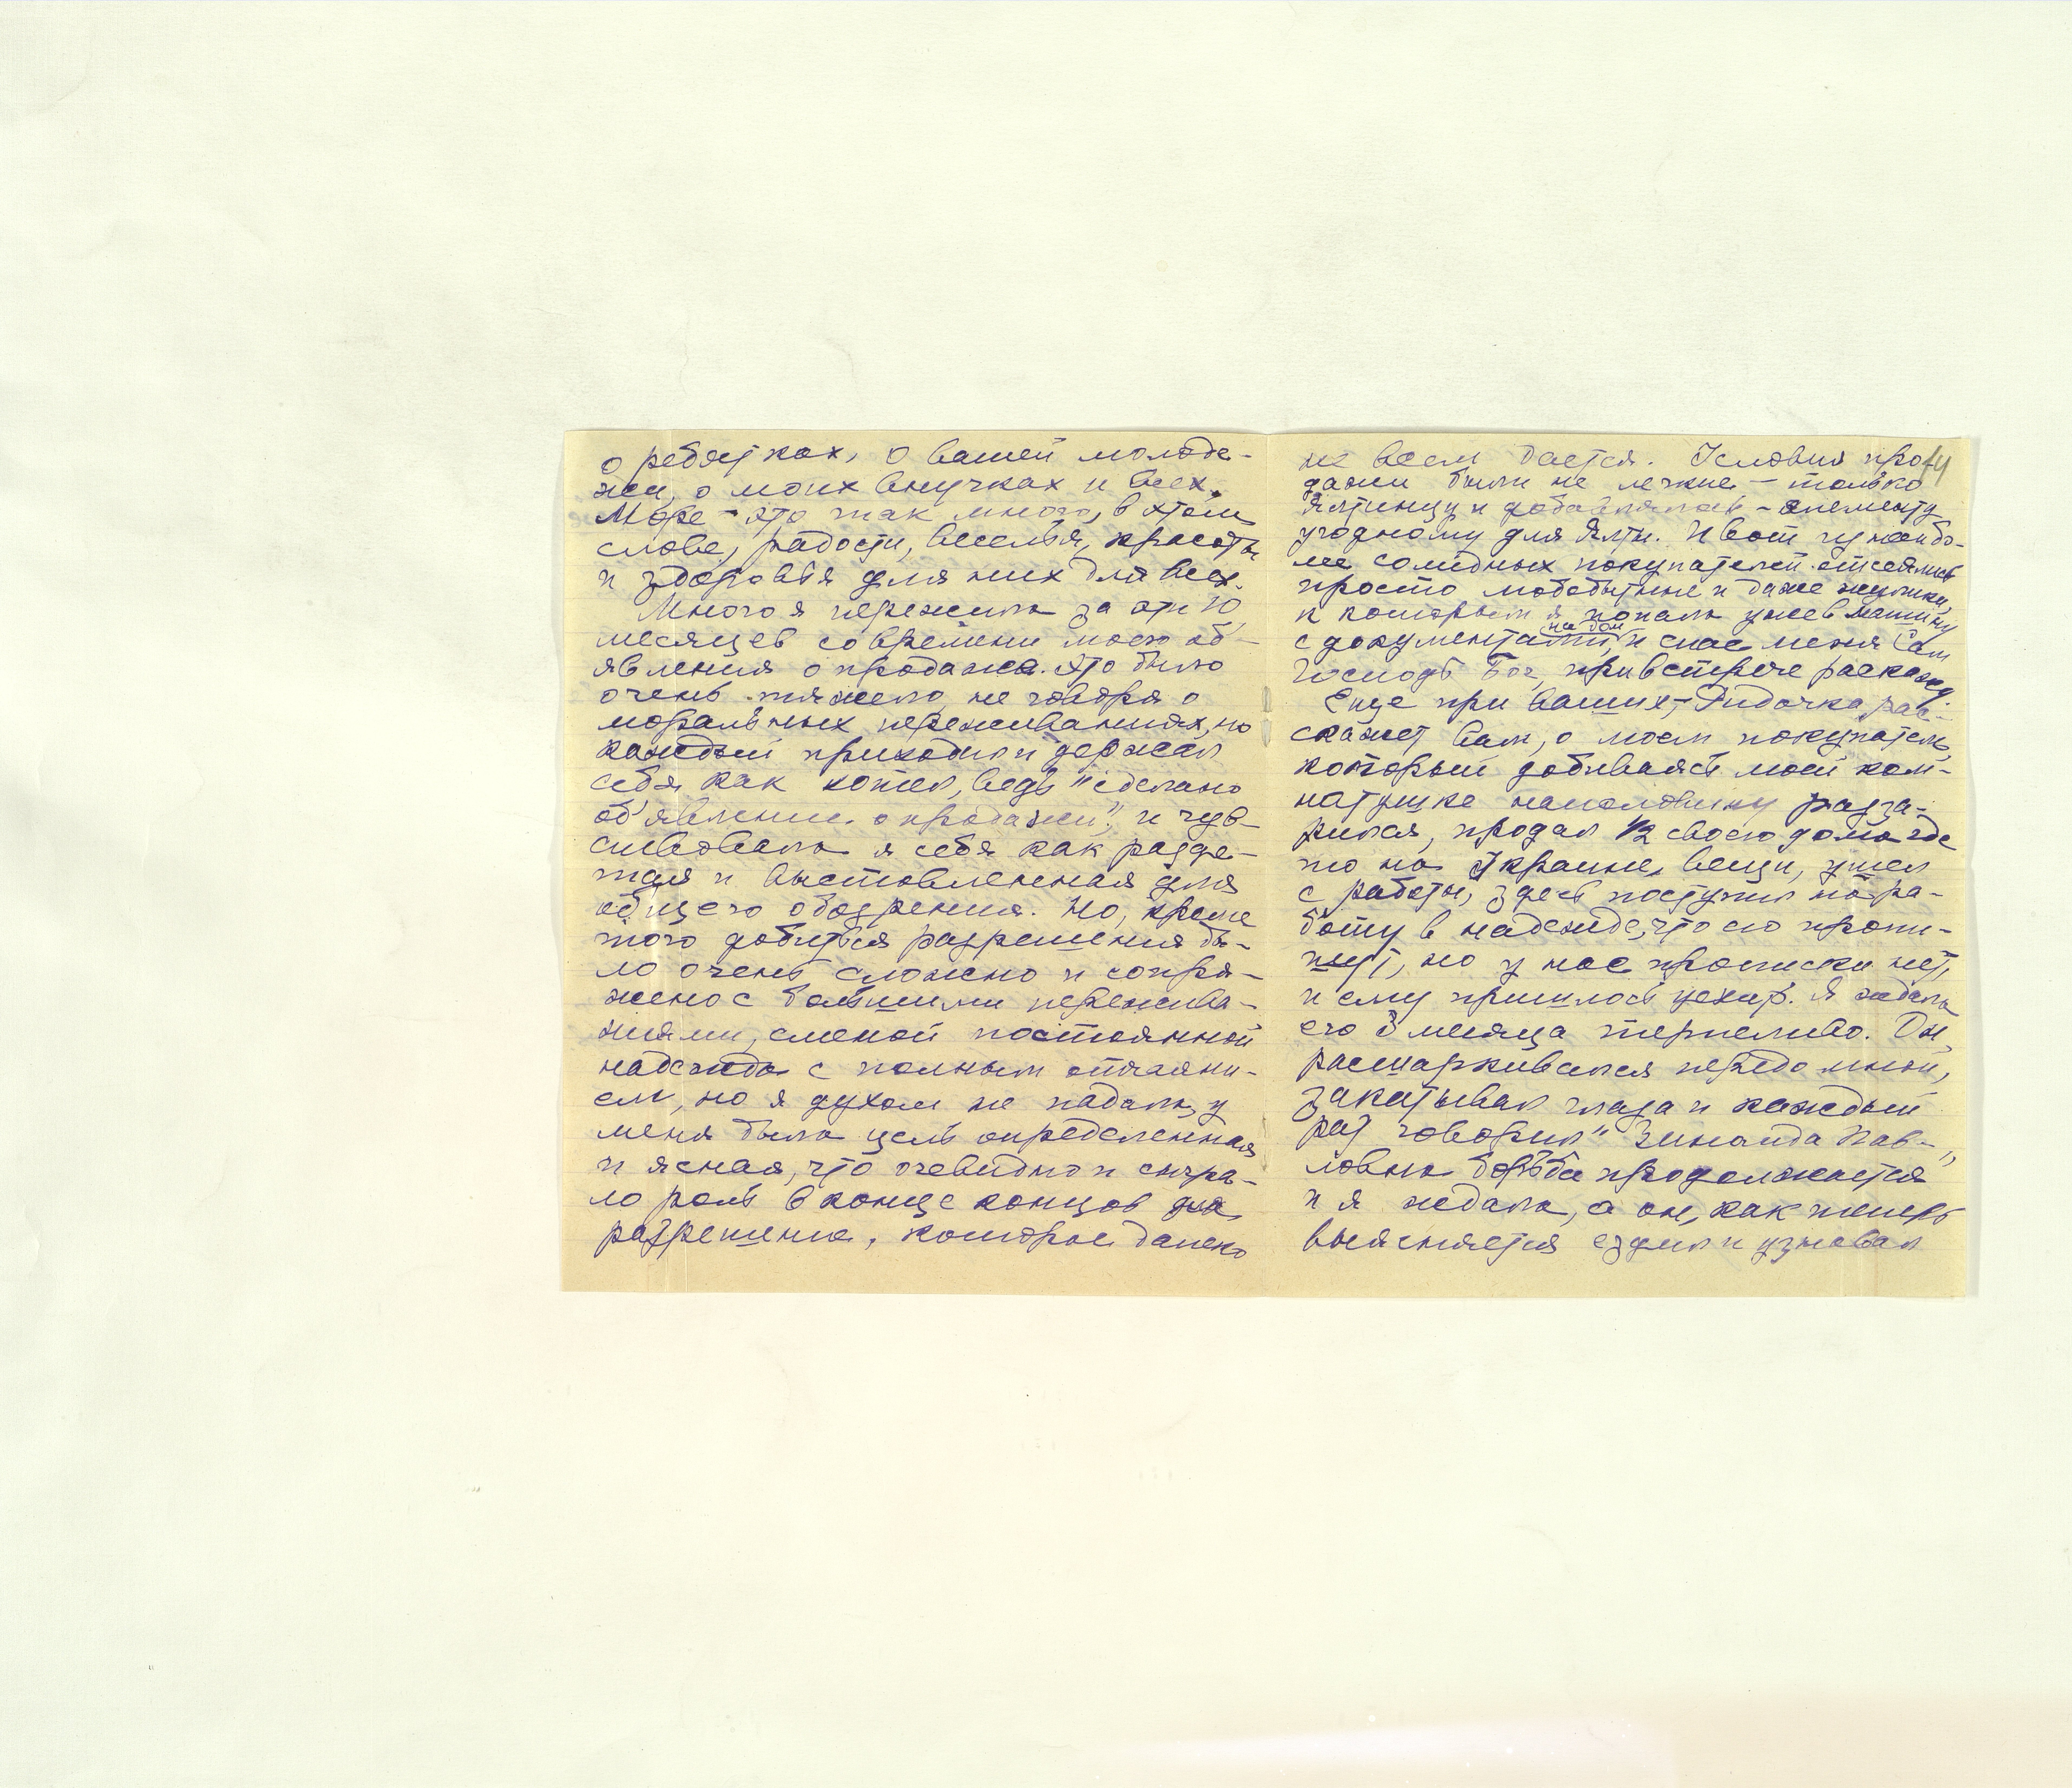 о ребятках, о вашей молоде-
жи, о моих внучках и всех.
Море – это так много, в этом
слове, радости, веселья, красоты
и здоровья для них для всех.
Много я пережила за эти 10
месяцев со времени моего об'-
явления о продаже. Это было
очень тяжело, не говоря о
моральных переживаниях, но
каждый приходил и держал
себя как хотел, ведь "сделано
об'явление о продаже", и чув-
ствовала я себя как разде-
тая и выставленная для
общего обозрения. Но, кроме
того добиться разрешения бы-
ло очень сложно и сопря-
жено с большими пережива-
ниями, сменой постоянной
надежды с полным отчаяни-
ем, но я духом не падала, у
меня была цель определенная
и ясная, что очевидно и сыгра-
ло роль в конце концов для
разрешения, которое далеко
не всем дается. Условия про
дажи были не легкие – только
Ялтинцу и добавлялось – элементу
угодному для Ялты. И вот
солидных покупателей отсеялись
просто любопытные и даже жулики,
к которым я попала уже в машину
с документами, и спас меня Сам
на дом
Господь Бог, при встрече расскажу.
Еще при ваших, – Лидочка рас-
скажет вам, о моем покупателе,
который добиваясь моей ком-
натушке наполовину разза-
рился, продал 1/2 своего дома где
то на Украине, вещи, ушел
с работы, здесь поступил на ра-
боту в надежде, что его пропи-
шут, но у нас прописки нет,
и ему пришлось уехать. Я ждала
его 3 месяца терпеливо. Он,
расшаркивался передо мной,
закатывал глаза и каждый
раз говорил "Зинаида Пав-
ловна борьба продолжается"
и я ждала, а он, как теперь
выясняется ездил и узнавал